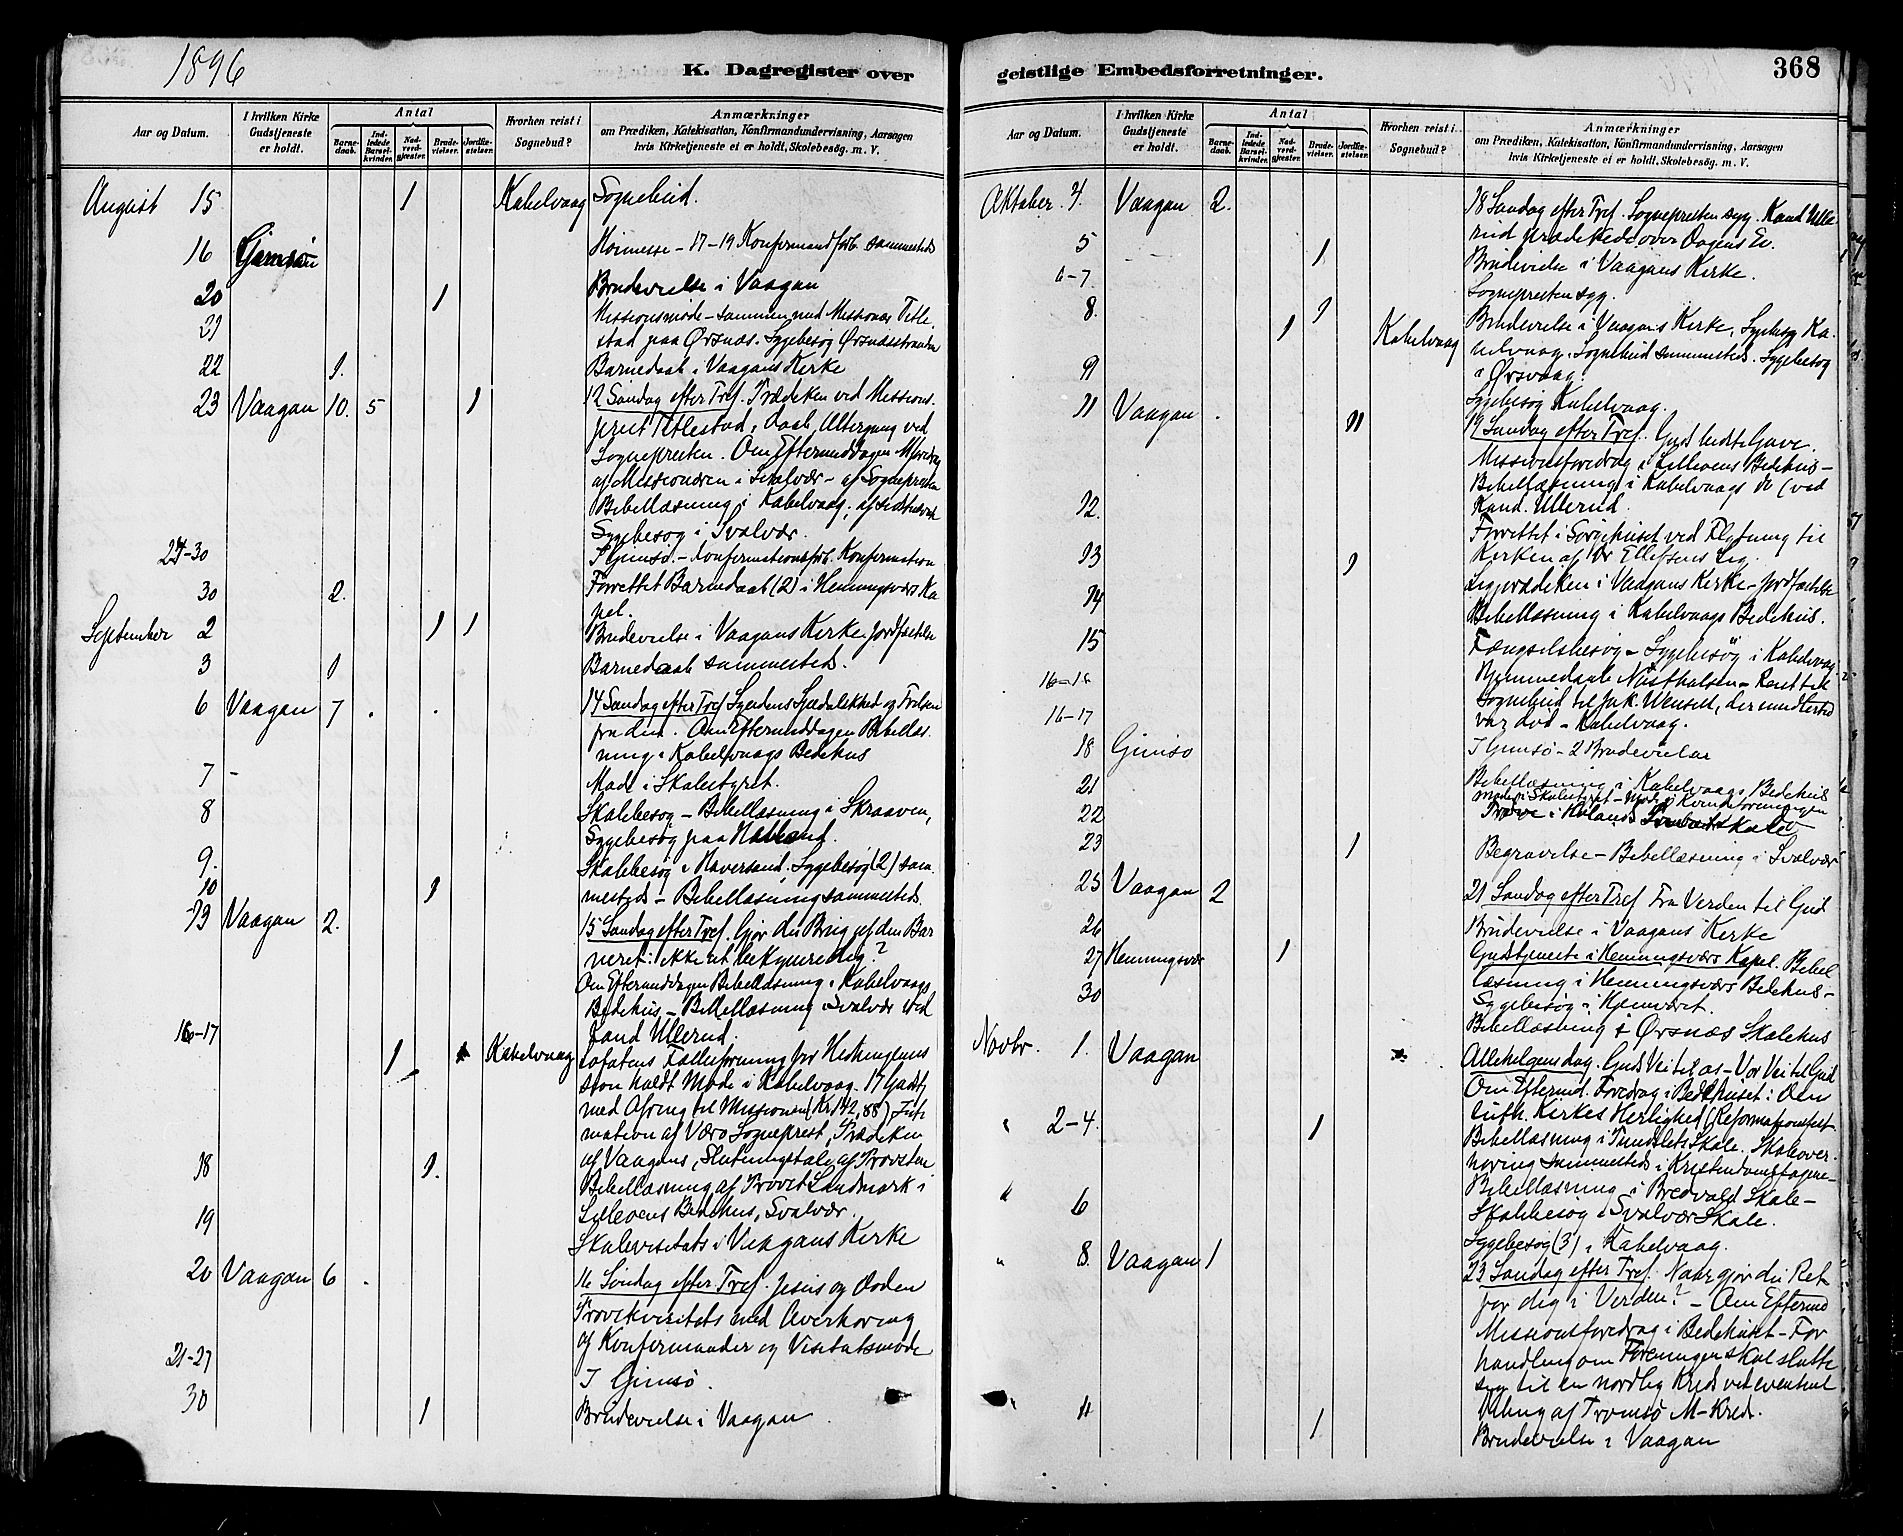 1896
K. Dagregister over
Aar og Datum.
I hvilken Kirke Gudstjeneste er holdt.
Antal
Barnedaab.
Indledede Barselkvinder.
Nadverdgjester.
Brudevielser.
Jordfæstelser.
Hvorhen reist i Sognebud?
Anmærkninger
om Prædiken, Katekisation, Konfirmandundervisning, Aarsagen
hvis Kirketjeneste ei er holdt, Skolebesög. m. V.
August 15 1 Kabelvaag Sognebud.
16 Gimsøen Høimesse – 17–19 Konfirmandforb. sammesteds
20 1 Brudevielse i Vaagan
21 Missionsmøde – sammen med Missionær Titlestad paa Ørsnæs. Sygebesøg Ørsnæsstranden
22 1. Barnedaab i Vaagans Kirke
23 Vaagan 10. 5 1 12 Søndag efter Tref. Prædiken ved Missionsprest Titlestad, Daab, Altergang ved
Sognepresten. Om Eftermiddagen Mforedrag
af Missionæren i Svolvær – af Sognepresten
Bibellæsning i Kabelvaag,
Sygebesøg i Svolvær.
24–30 I Gimsø. – Konfirmationsforb. Konfirmation
30 2. Forrettet Barnedaab (2) i Henningsværs Kapel.
September 2 1 1 Brudevielse i Vaagans Kirke. Jordfæstelse
3 1 Barnedaab sammesteds.
6 Vaagan 7 14 Søndag efter Tref Syndens Spedalskhed og Frelsen
fra den. Om Eftermiddagen Bibellæsning i Kabelvaags Bedehus
7 – Møde i Skolestyret.
8 Skolebesøg – Bibellæsning i Skraaven,
Sygebesøg paa
9. Skolebesøg i Haversand, Sygebesøg (2) sammesteds – Bibellæsning sammesteds.
10 1
13 Vaagan 2. 15 Søndag efter Tref. Gjør du Brug af den Barneret: ikke at bekymre dig?
Om Eftermiddagen Bibellæsning i Kabelvaags
Bedehus – Bibellæsning i Svolvær ved
Kand Ullerud.
16–17 1 Kabelvaag Lofotens Fællesforening for Hedningemission holdt Møde i Kabelvaag. 17 Gudstj
med Ofring til Missionen (Kr 142,88)
af Værø Sogneprest, Prædiken
af Vaagans, Slutningstale af Provsten
18 1. Bibellæsning af Provst Landmark i
Lilleøens Bedehus, Svolvær.
19 Skolevisitats i Vaagans Kirke
20 Vaagan 6 16 Søndag efter Tref. Jesus og Døden
Provstevisitats med Overhøring
af Konfirmander og Visitatsmøde
21–27 I Gimsø.
30 1 Brudevielse i Vaagan
geistlige Embedsforretninger.
368
Aar og Datum.
I hvilken Kirke Gudstjeneste er holdt.
Antal
Barnedaab.
Indledede Barselkvinder.
Nadverdgjester.
Brudevielser.
Jordfæstelser.
Hvorhen reist i Sognebud?
Anmærkninger
om Prædiken, Katekisation, Konfirmandundervisning, Aarsagen
hvis Kirketjeneste ei er holdt, Skolebesög. m. V.
Oktober 4. Vaagan 2. 18 Søndag efter Tref. Sognepresten syg. Kand Ullerud prædikede over Dagens Ev.
5 1 Brudevielse i Vaagans Kirke.
6–7 Sognepresten syg.
8. 1 1 Kabelvaag Brudevielse i Vaagans Kirke, Sygebesøg Kabelvaag. Sognebud sammesteds. Sygebesøg
i Ørsvaag.
9 Sygebesøg Kabelvaag.
11 Vaagan 11 19 Søndag efter Tref. Guds bedste Gave.
Missionsforedrag i Lilleøens Bedehus –
Bibellæsning i Kabelvaags do (ved
Kand. Ullerud.
12. Forrettet i Sørgehuset ved Flytning til
Kirken af Dr Ellefsens Lig.
13 1 Ligprædiken i Vaagans Kirke – Jordfæstelse
14 Bibellæsning i Kabelvaags Bedehus.
15 Fængselsbesøg – Sygebesøg i Kabelvaag
Hjemmedaab – Reist til
Sognebud til Jak. Wensell, der imidlertid
var død – Kabelvaag.
16–17
18 Gimsø I Gimsø – 2 Brudevielser
21 Bibellæsning i Kabelvaags Bedehus
22 Møde i Skolestyret – Møde i Kvindeforeningen
23 1 Begravelse – Bibellæsning i Svolvær
25 Vaagan 2 21 Søndag efter Tref Fra Verden til Gud
26 Brudevielse i Vaagans Kirke
27 Henningsvær 1 Gudstjeneste i Henningsværs Kapel. Bibellæsning i Henningsværs Bedehus –
Sygebesøg i
30 Bibellæsning i Ørsnæs Skolehus
Novbr. 1. Vaagan Allehelgensdag. Guds Vei til os – Vor Vei til Gud
Om Eftermid. Foredrag i Bedehuset: Den
luth. Kirkes Herlighed (Reformationsfest
2–4. 1 Bibellæsning i Skole. Skoleoverhøring sammesteds i Kristendomsfagene –
Bibellæsning i Bredvold Skole –
Skolebesøg i Svolvær Skole.
6 Sygebesøg (3) i Kabelvaag.
8. Vaagan 1 23 Søndag efter Tref. Naar gjør du Ret
for dig i Verden? – Om Eftermid
Missionsforedrag i Bedehuset – Forhandling om Foreningen skal slutte
sig til en nordlig Kreds ved eventuel
Deling af Tromsø M-Kreds.
11 1 Brudevielse i Vaagan